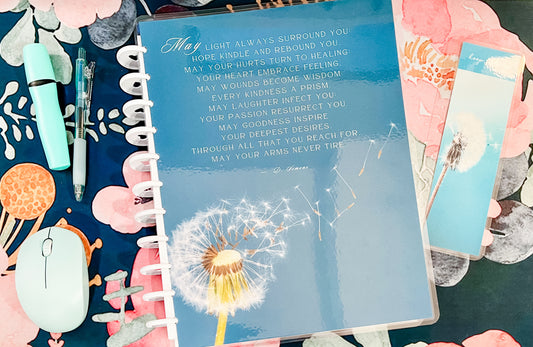 May LIGHT ALWAYS SURROUND YOU
HOPE KINDLE AND REBOUND YOU
MAY YOUR HURTS TURN TO HEALING
YOUR HEART EMBRACE FEELING.
MAY WOUNDS BECOME WISDOM
EVERY KINDNESS A PRISM
MAY LAUGHTER INFECT YOU
YOUR PASSION RESURRECT YOU
MAY GOODNESS INSPIRE
YOUR DEEPEST DESIRES
THROUGH ALL THAT YOU REACH FOR
MAY YOUR ARMS NEVER TIRE